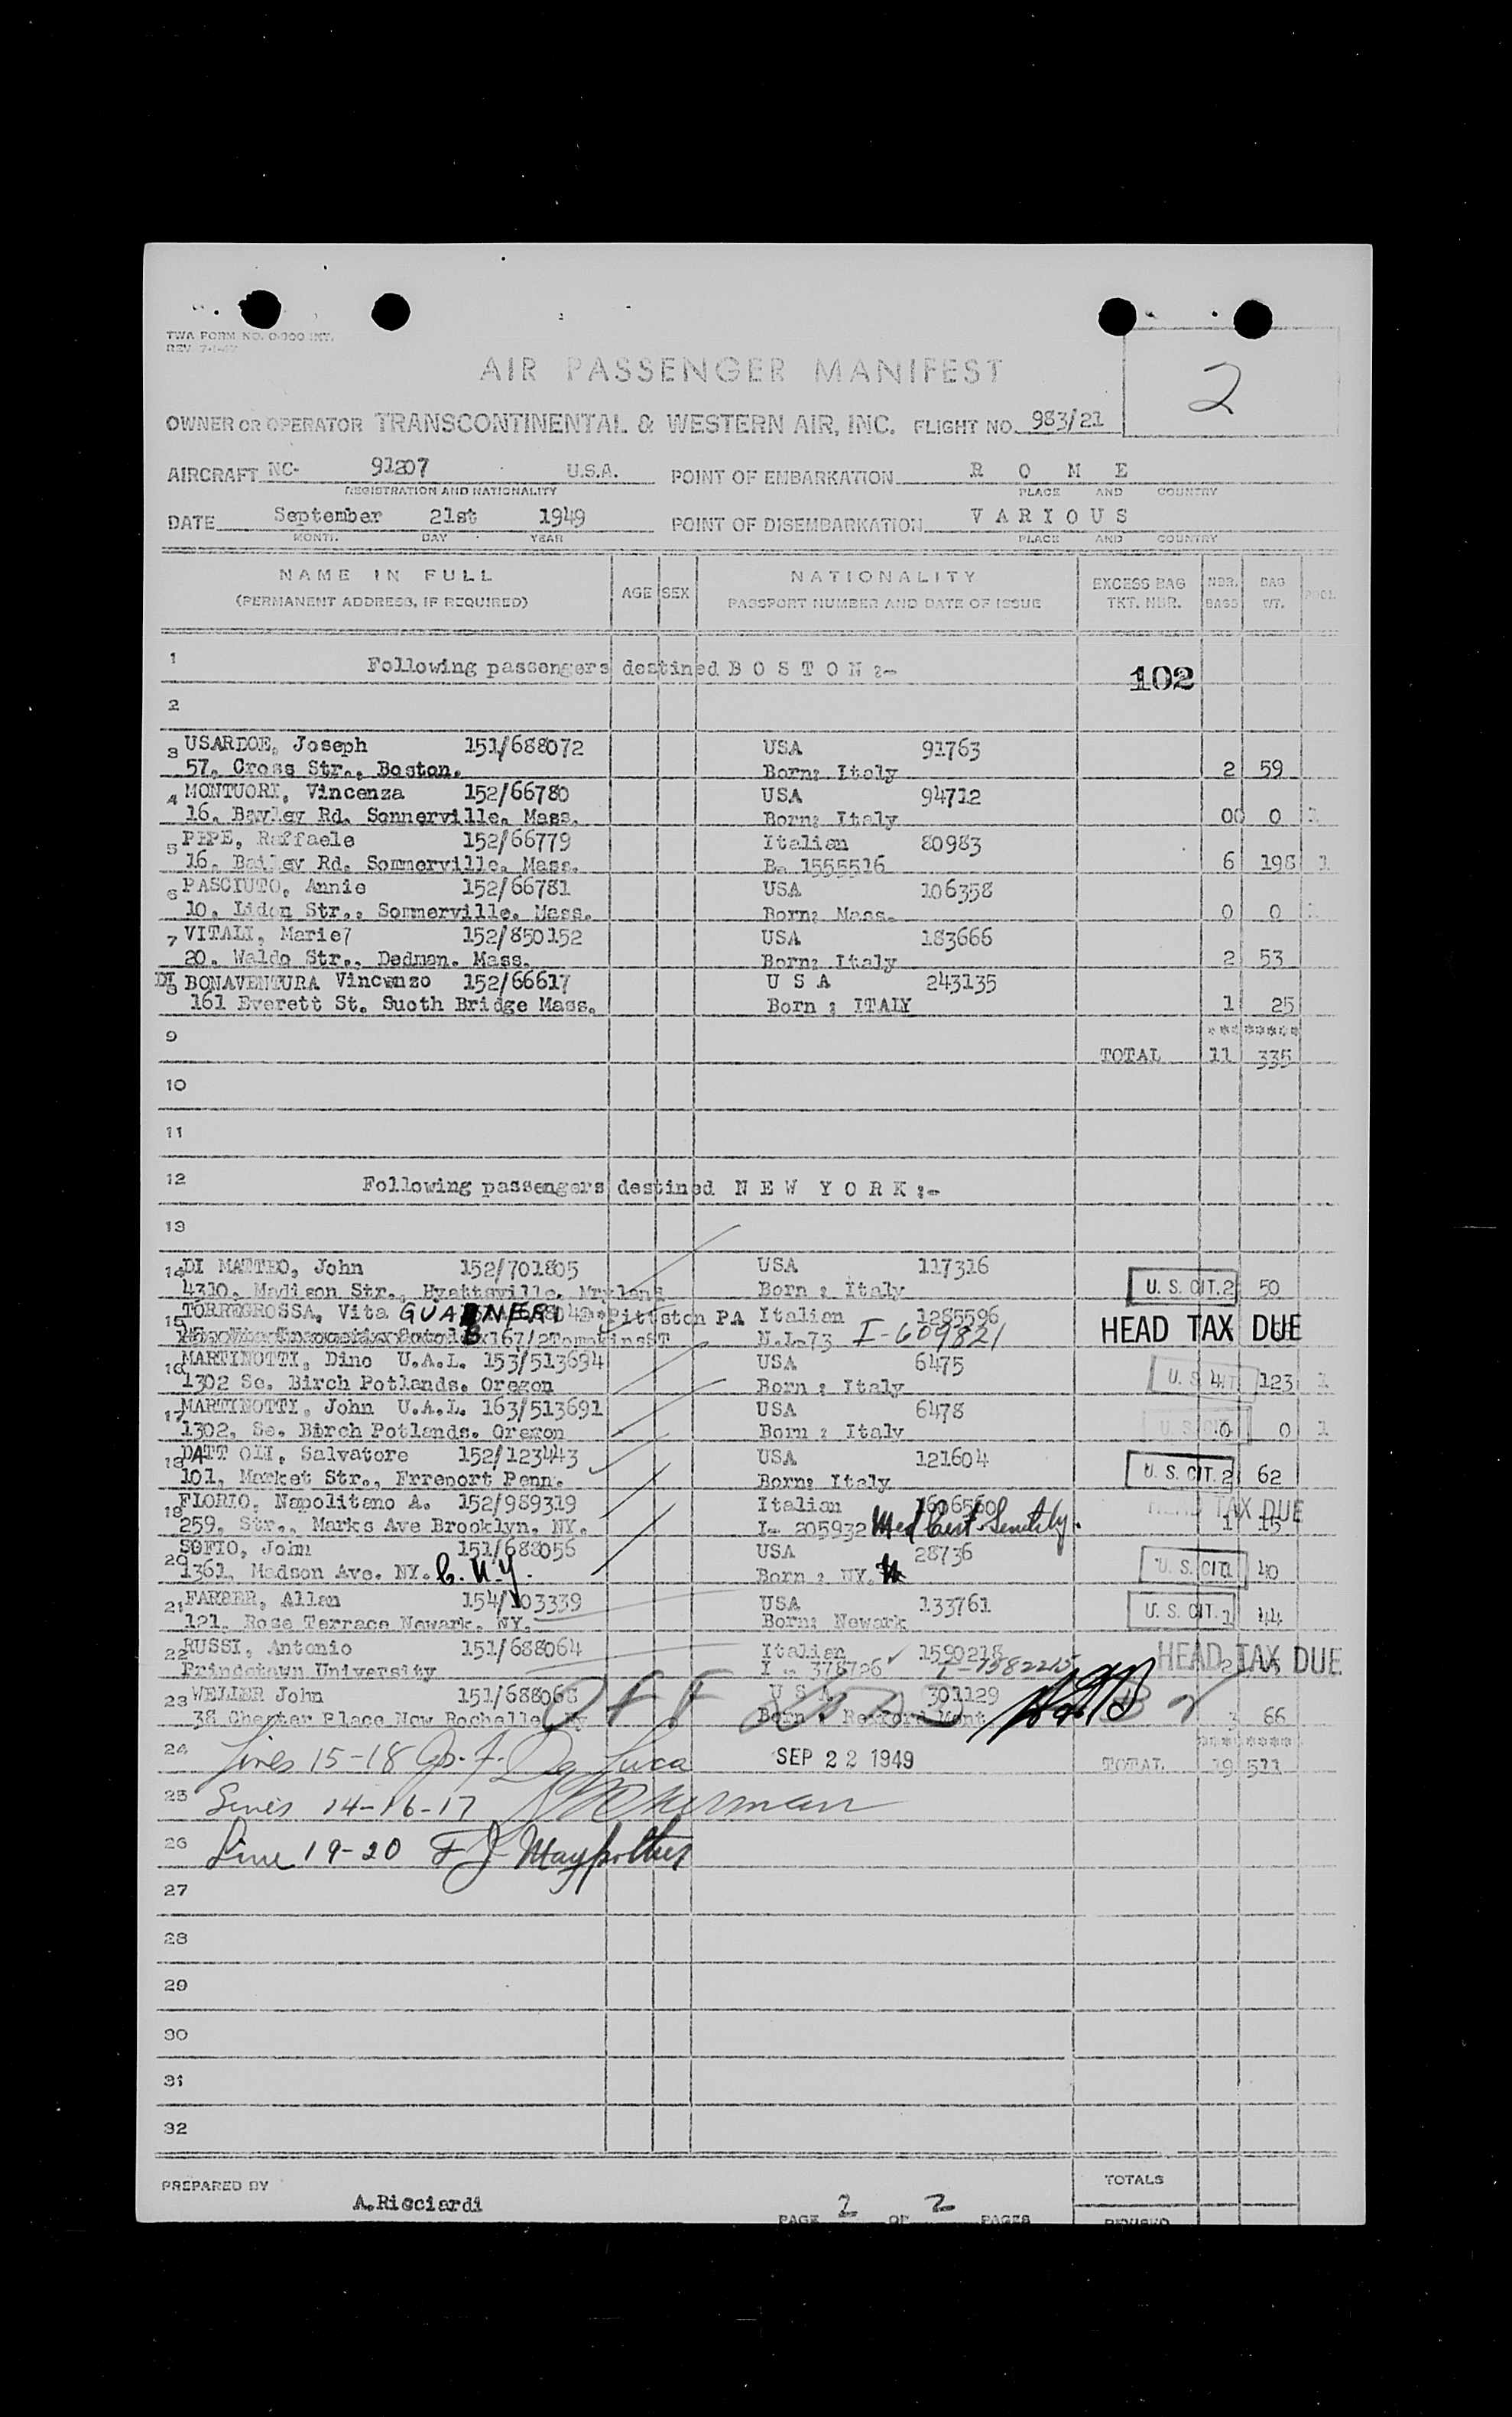 TWA FORM NO. O-300 INT.
REV. 7-1-47
AIR PASSENGER MANIFEST
2
OWNER OR OPERATOR TRANSCONTINENTAL & WESTERN AIR, INC. FLIGHT NO. 983/21
AIRCRAFT NC- 91207 U.S.A. POINT OF EMBARKATION R O M E
REGISTRATION AND NATIONALITY PLACE AND COUNTRY
DATE September 21st 1949 POINT OF DISEMBARKATION V A R I O U S
MONTH DAY YEAR PLACE AND COUNTRY
NAME IN FULL AGE SEX NATIONALITY EXCESS BAG NBR. BAG
(PERMANENT ADDRESS, IF REQUIRED) PASSPORT NUMBER AND DATE OF ISSUE TKT. NBR. BAGS WT.
1 Following passengers destined B O S T O N :- 102
2
3 USARDOE, Joseph 151/688072 USA 91763
57, Cross Str., Boston. Born: Italy 2 59
4 MONTUORI, Vincenza 152/66780 USA 94712
16, Bayley Rd. Sonnerville. Mass. Born: Italy 00 0 1
5 PEPE, Raffaele 152/66779 Italian 80983
16, Bailey Rd. Sommerville. Mass. B. 1555516 6 198 1
6 PASCIUTO, Annie 152/66781 USA 106358
10, Lidon Str., Sommerville. Mass. Born: Mass. 0 0 1
7 VITALI, Marie7 152/850152 USA 183666
20. Waldo Str., Dedman. Mass. Born: Italy 2 53
8 DI BONAVENTURA Vincenzo 152/66617 U S A 243135
161 Everett St. Suoth Bridge Mass. Born : ITALY 1 25
*********
9 TOTAL 11 335
10
11
12 Following passengers destined N E W Y O R K :-
13
14 DI MATTEO, John 152/701805 USA 117316
4310, Madison Str., Hyattsville. Mryland Born : Italy U. S. CIT. 2 50
15 TORREGROSSA, Vita GUARNERI Pittston PA Italian 1285596
167/2TompkinsST N.I-73 I-609821 HEAD TAX DUE
16 MARTINOTTI, Dino U.A.L. 153/513694 USA 6475
1302 Se. Birch Potlands. Oregon Born : Italy U. S. CIT. 4 123 1
17 MARTINOTTI, John U.A.L. 163/513691 USA 6478
1302, Se. Birch Potlands. Oregon Born : Italy U. S. CIT. 0 0 1
18 DATT OLI, Salvatore 152/123443 USA 121604
101, Market Str., Frrenort Penn. Born: Italy U. S. CIT. 2 62
19 FLORIO, Napolitano A. 152/989319 Italian
259, Str., Marks Ave Brooklyn. NY. I- 205932 Med Cert. HEAD TAX DUE 1 15
20 SOFIO, John 151/688056 USA 28736
1361, Madson Ave. NY. C. N.Y. Born : NY. U. S. CIT. 1 40
21 FARBER, Allan 154/103339 USA 133761
121. Rose Terrace Newark. NY. Born: Newark U. S. CIT. 1 44
22 RUSSI, Antonio 151/688064 Italian 1590218
Prindetown University I - 378726 HEAD TAX DUE 2
23 WELLER John 151/688068 U S A 301129
38 Chester Place New Rochelle Ny Born : Rexford Mont OFF 3 66
*********
24 Lines 15-18 De Luca SEP 22 1949 TOTAL 19 511
25 Lines 14-16-17
26 Line 19-20 F J
27
28
29
30
31
32
PREPARED BY A.Ricciardi TOTALS
PAGE 2 OF 2 PAGES REVISED